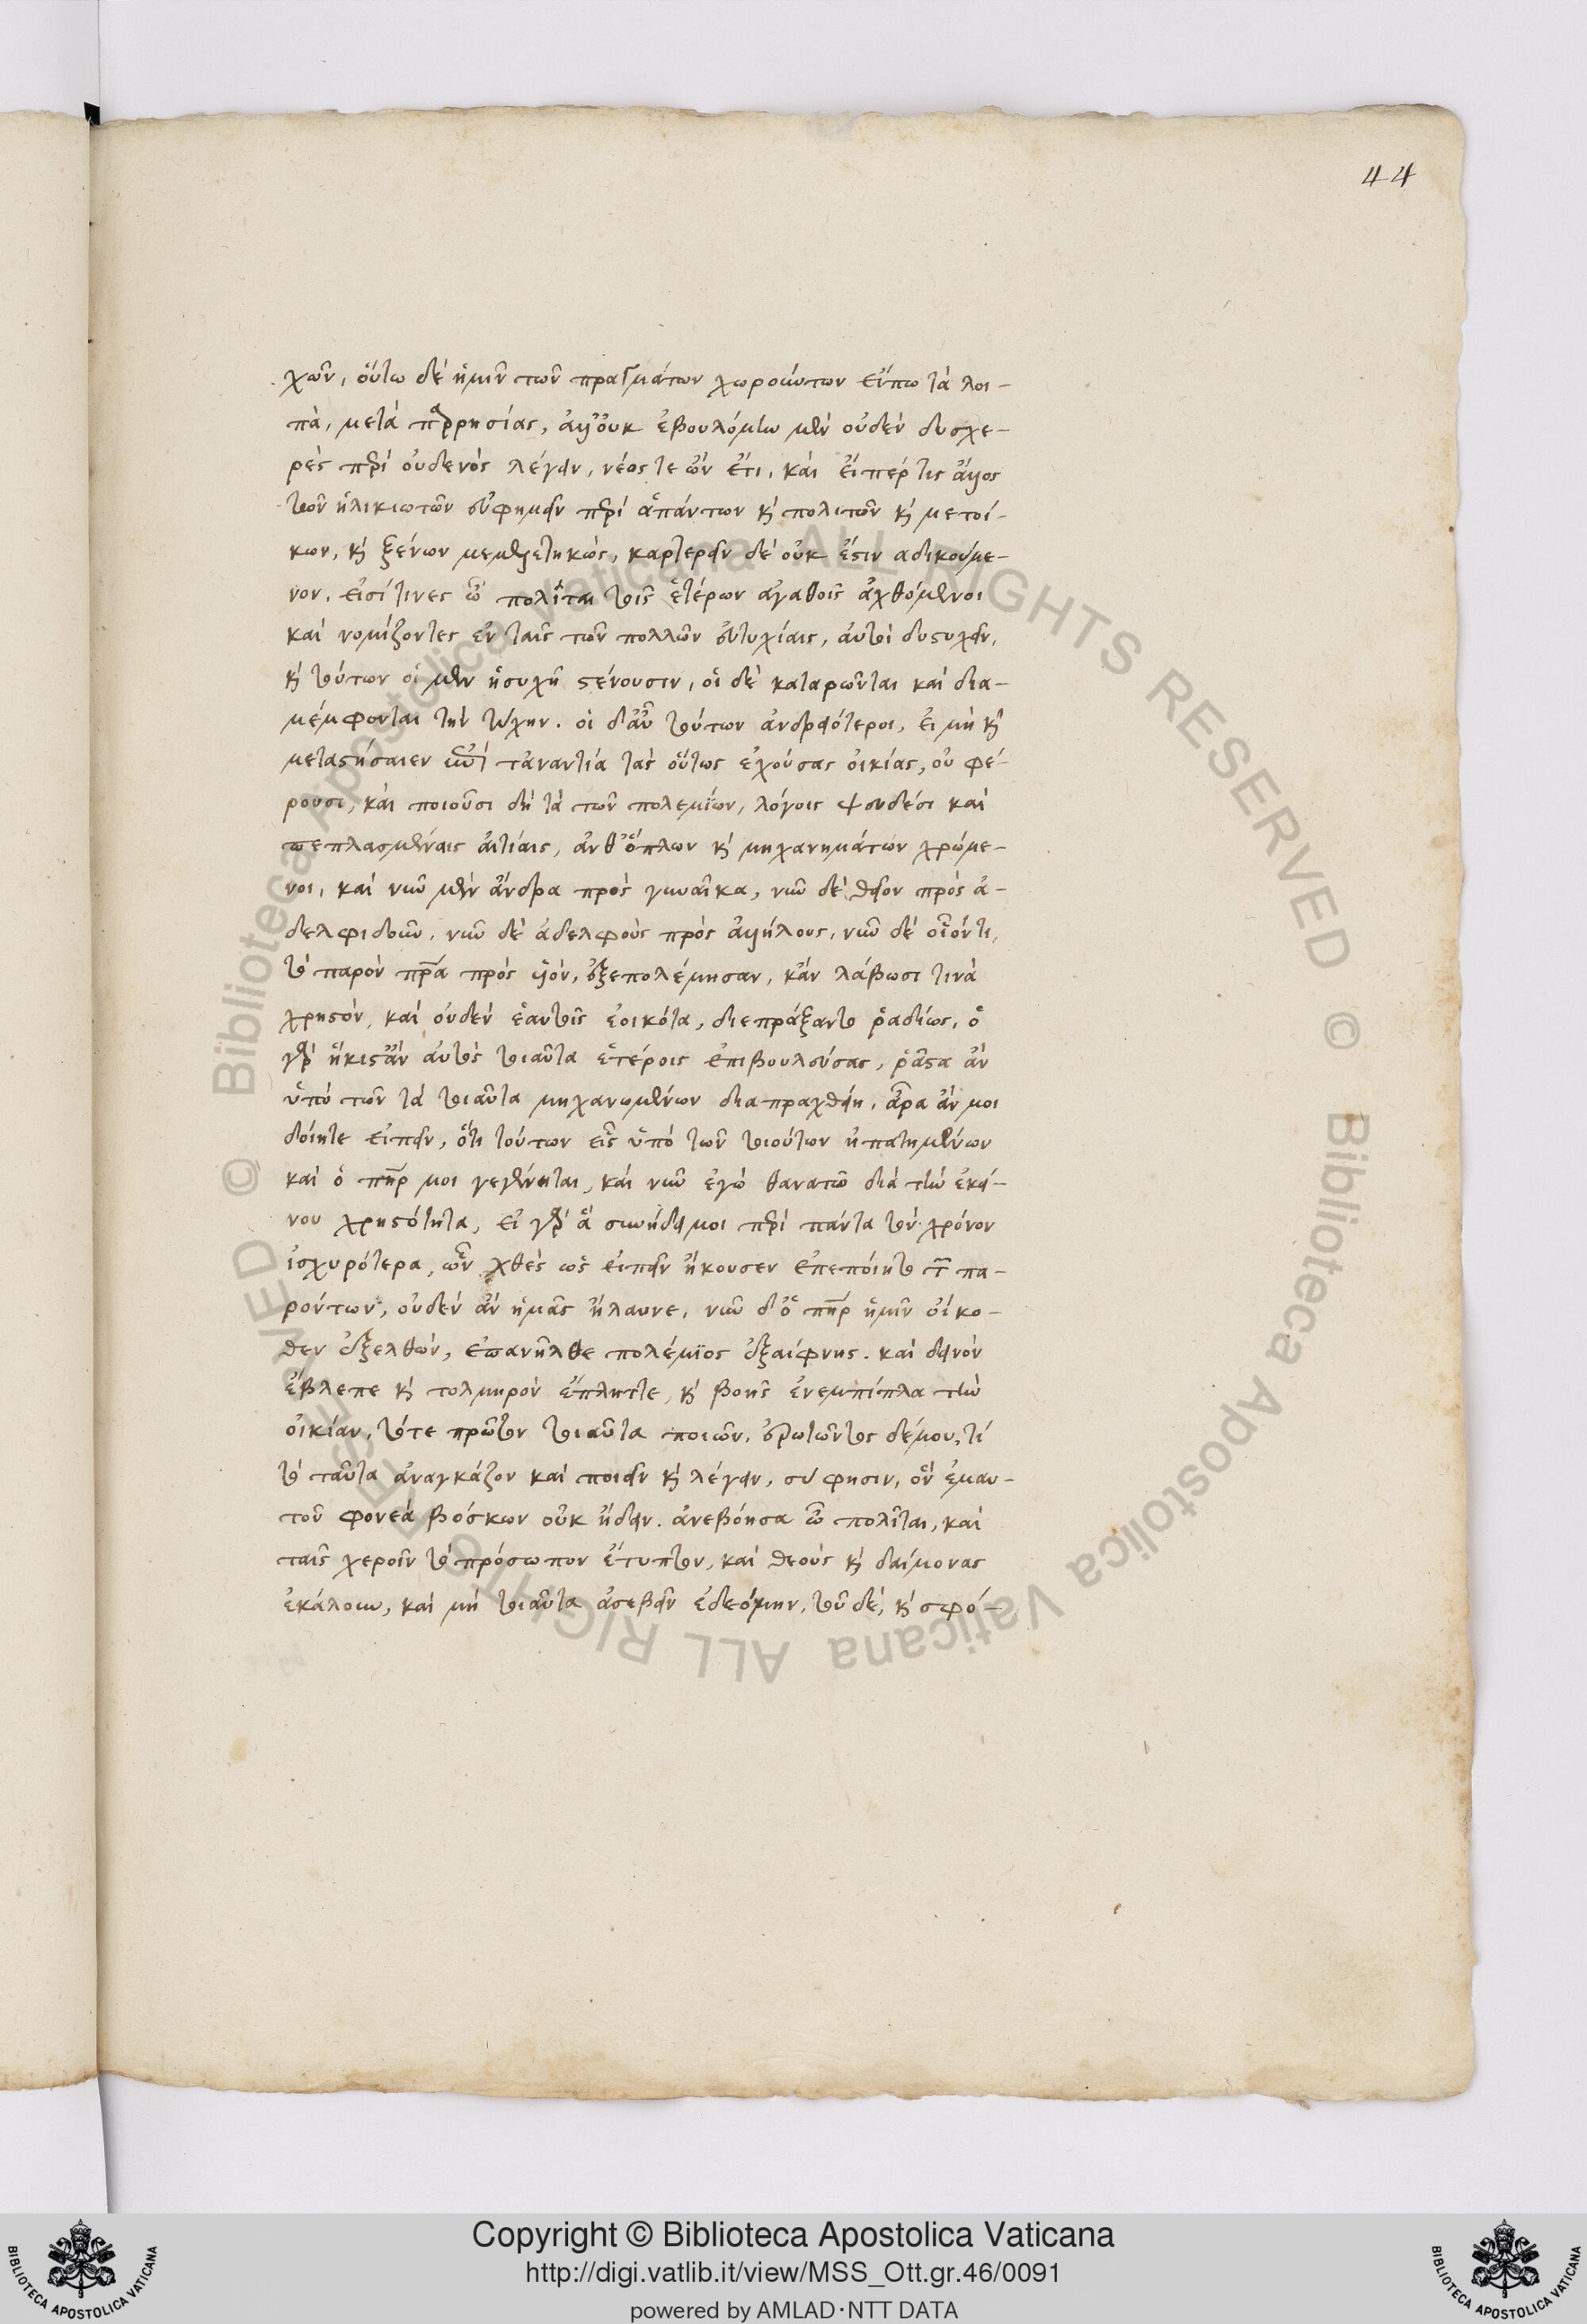 44
χῶν, οὕτω δὲ ἡμῖν τῶν πραγμάτων χωρούντων εἴπω τὰ λοι-
πὰ, μετὰ παρρησίας, ἀλλ' οὐκ ἐβουλόμην μὲν οὐδὲν δυσχε-
ρὲς περὶ οὐδενὸς λέγειν, νέος τε ὢν ἔτι, καὶ εἴπερ τις ἄλλος
τῶν ἡλικιωτῶν εὐφημεῖν περὶ ἁπάντων καὶ πολιτῶν καὶ μετοί-
κων, καὶ ξένων μεμελετηκὼς, καρτερεῖν δὲ οὐκ ἔστιν ἀδικούμε-
νον. εἰσί τινες ὦ πολῖται τοῖς ἑτέρων ἀγαθοῖς ἀχθόμενοι
καὶ νομίζοντες ἐν ταῖς τῶν πολλῶν εὐτυχίαις, αὐτοὶ δυστυχεῖν,
καὶ τούτων οἱ μὲν ἡσυχῆ στένουσιν, οἱ δὲ καταρῶνται καὶ δια-
μέμφονται τὴν τύχην. οἱ δ' αὖ τούτων ἀνδρειότεροι, εἰ μὴ καὶ
μεταστήσαιεν ἐπὶ τἀναντία τὰς οὕτως ἐχούσας οἰκίας, οὐ φέ-
ρουσι, καὶ ποιοῦσι δὴ τὰ τῶν πολεμίων, λόγοις ψευδέσι καὶ
πεπλασμέναις αἰτίαις, ἀνθ' ὅπλων καὶ μηχανημάτων χρώμε-
νοι, καὶ νῦν μὲν ἄνδρα πρὸς γυναῖκα, νῦν δὲ θεῖον πρὸς ἀ-
δελφιδοῦν, νῦν δὲ ἀδελφοὺς πρὸς ἀλλήλους, νῦν δὲ οἷόν τι,
τὸ παρὸν πατέρα πρὸς υἱὸν, ἐξεπολέμησαν, κἂν λάβωσί τινα
χρηστὸν, καὶ οὐδὲν ἑαυτοῖς ἐοικότα, διεπράξαντο ῥᾳδίως, ὁ
γὰρ ἥκιστ' ἂν αὐτὸς τοιαῦτα ἑτέροις ἐπιβουλεύσας, ῥᾷστα ἂν
ὑπὸ τῶν τὰ τοιαῦτα μηχανωμένων διαπραχθείη. ἆρα ἄν μοι
δοίητε εἰπεῖν, ὅτι τούτων εἷς ὑπὸ τῶν τοιούτων ἠπατημένων
καὶ ὁ πατήρ μοι γεγένηται, καὶ νῦν ἐγὼ θανατῶ διὰ τὴν ἐκεί-
νου χρηστότητα, εἰ γὰρ ἃ συνῄδει μοι περὶ πάντα τὸν χρόνον
ἰσχυρότερα, ὧν χθὲς ὡς εἰπεῖν ἤκουσεν ἐπεποίητο τῶν πα-
ρόντων, οὐδὲν ἂν ἡμᾶς ἤλαυνε, νῦν δ' ὁ πατὴρ ἡμῖν οἴκο-
θεν ἐξελθὼν, ἐπανῆλθε πολέμιος ἐξαίφνης. καὶ δεινὸν
ἔβλεπε καὶ τολμηρὸν ἔπληττε, καὶ βοῆς ἐνεμπίπλα τὴν
οἰκίαν, τότε πρῶτον τοιαῦτα ποιῶν, ἐρωτῶντος δέ μου, τί
τὸ ταῦτα ἀναγκάζον καὶ ποιεῖν καὶ λέγειν, σύ φησιν, ὃν ἐμαυ-
τοῦ φονέα βόσκων οὐκ ᾔδειν. ἀνεβόησα ὦ πολῖται, καὶ
ταῖς χεροῖν τὸ πρόσωπον ἔτυπτον, καὶ θεοὺς καὶ δαίμονας
ἐκάλουν, καὶ μὴ τοιαῦτα ἀσεβεῖν ἐδεόμην, τοῦ δὲ, καὶ σφό-
Copyright © Biblioteca Apostolica Vaticana
http://digi.vatlib.it/view/MSS_Ott.gr.46/0091
powered by AMLAD·NTT DATA